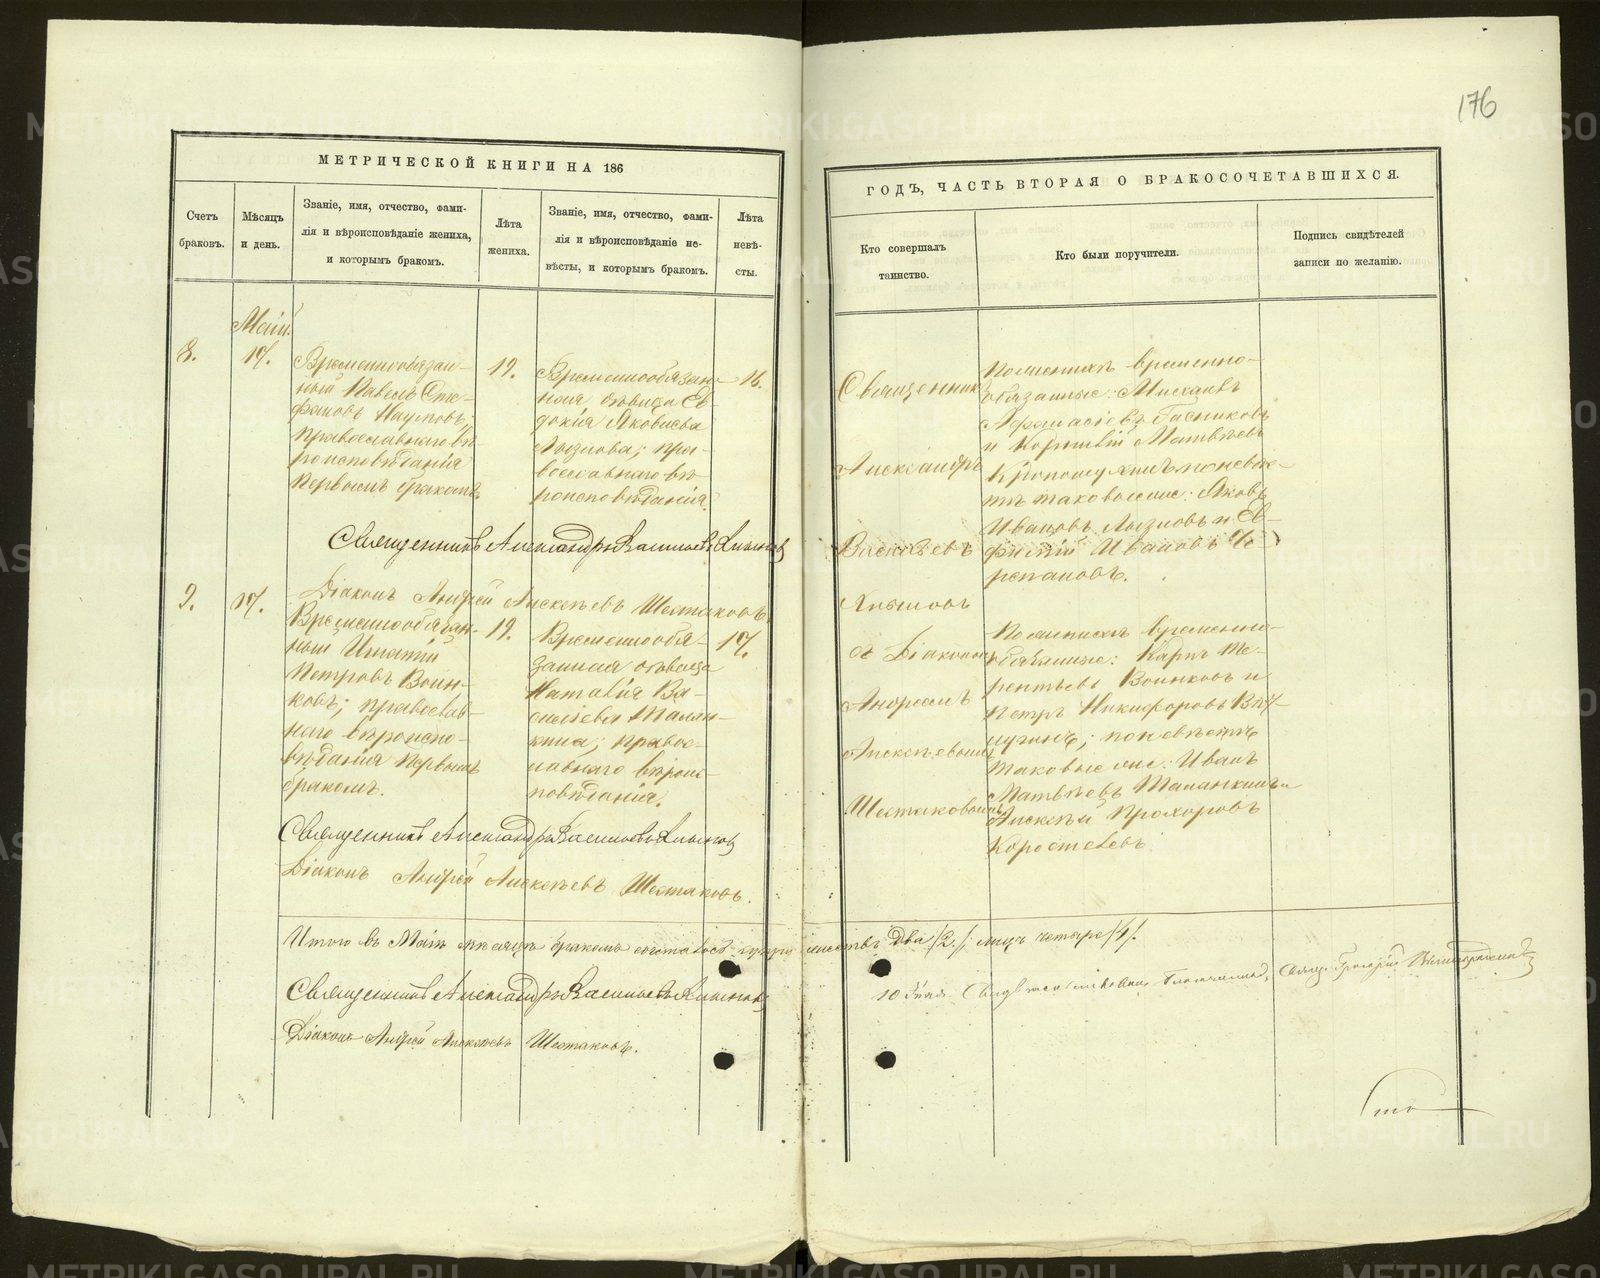 176
МЕТРИЧЕСКОЙ КНИГИ НА 186
ГОДЪ, ЧАСТЬ ВТОРАЯ О БРАКОСОЧЕТАВШИХСЯ.
Счетъ
браковъ.
Мѣсяцъ
и день.
Званіе, имя, отчество, фами-
лія и вѣроисповѣданіе жениха,
и которымъ бракомъ.
Лѣта
жениха.
Званіе, имя, отчество, фами-
лія и вѣроисповѣданіе не-
вѣсты, и которымъ бракомъ.
Лѣта
невѣ-
сты.
Кто совершалъ
таинство.
Кто были поручители.
Подпись свидѣтелей
записи по желанію.
Май.
8.
17.
Временнообязан-
ный Павелъ Сте-
фановъ Наумовъ,
православнаго вѣ-
роисповѣданія
первымъ бракомъ.
19.
Временнообязан-
ная дѣвица Ев-
докія Яковлева
Лызлова; пра-
вославнаго вѣ-
роисповѣданія.
16.
Священникъ
Александръ
Васильевъ
Хлыновъ
и Діакономъ
Андреемъ
Алексѣевымъ
Шестаковымъ
По женихѣ временно-
обязанные: Михаилъ
Афанасіевъ
и Матвѣевъ
по невѣс-
тѣ таковые же: Яковъ
Ивановъ Лызловъ и Ев-
Ивановъ Че-
репановъ.
Священникъ Александръ Васильевъ Хлыновъ
Діаконъ Андрей Алексѣевъ Шестаковъ
9.
17.
Временнообязан-
ный Игнатій
Петровъ Воин-
ковъ; православ-
наго вѣроиспо-
вѣданія первымъ
бракомъ.
19.
Временнообя-
занная дѣвица
Наталія Ва-
силіева Талан-
кина; право-
славнаго вѣроис-
повѣданія.
17.
По женихѣ временно-
обязанные: Карпъ Те-
рентьевъ Воинковъ и
Петръ Никифоровъ
по невѣстѣ
таковые же: Иванъ
Матвѣевъ Таланкинъ и
Алексѣй Прохоровъ
Коростелевъ.
Священникъ Александръ Васильевъ Хлыновъ
Діаконъ Андрей Алексѣевъ Шестаковъ.
Итого въ Маѣ мѣсяцѣ бракомъ два /2./, лицъ четыре /4/.
Священникъ Александръ Васильевъ Хлыновъ
Діаконъ Андрей Алексѣевъ Шестаковъ.
10 Благочинный, Свящ. Григорій